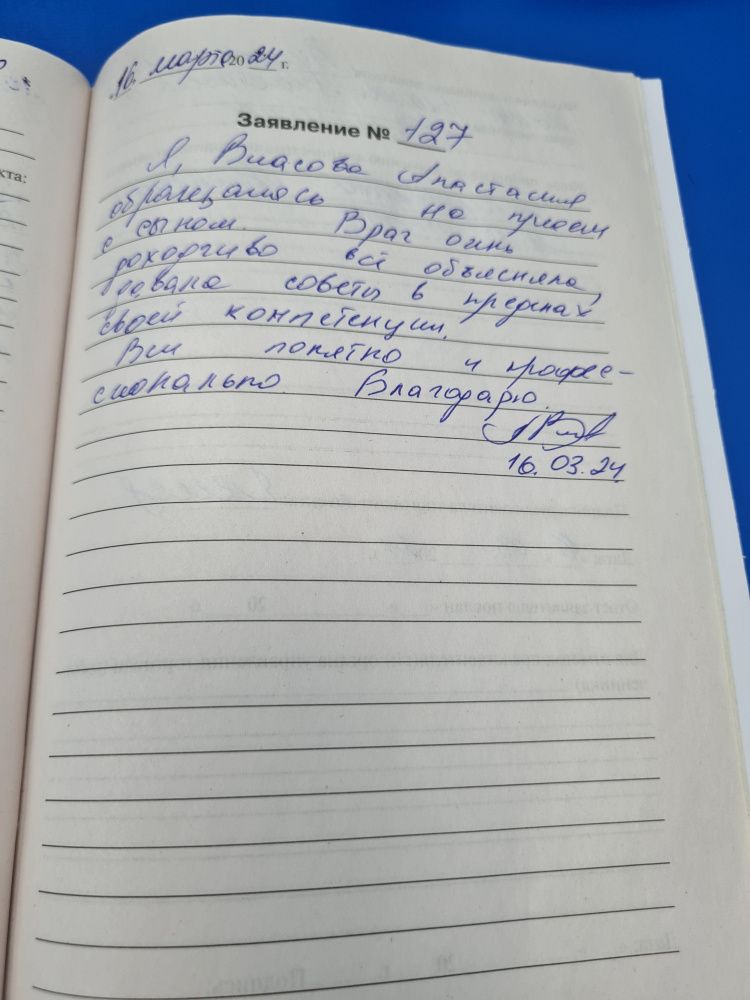 16. марта 2024 г.
Заявление № 127
Я, Власова Анастасия
обращалась на прием
с сыном. Врач очнь
доходчиво всё объясняла,
давала советы в пределах
своей компетенции.
Всё понятно и профес-
сионально. Благодарю.
16.03.24
кта: